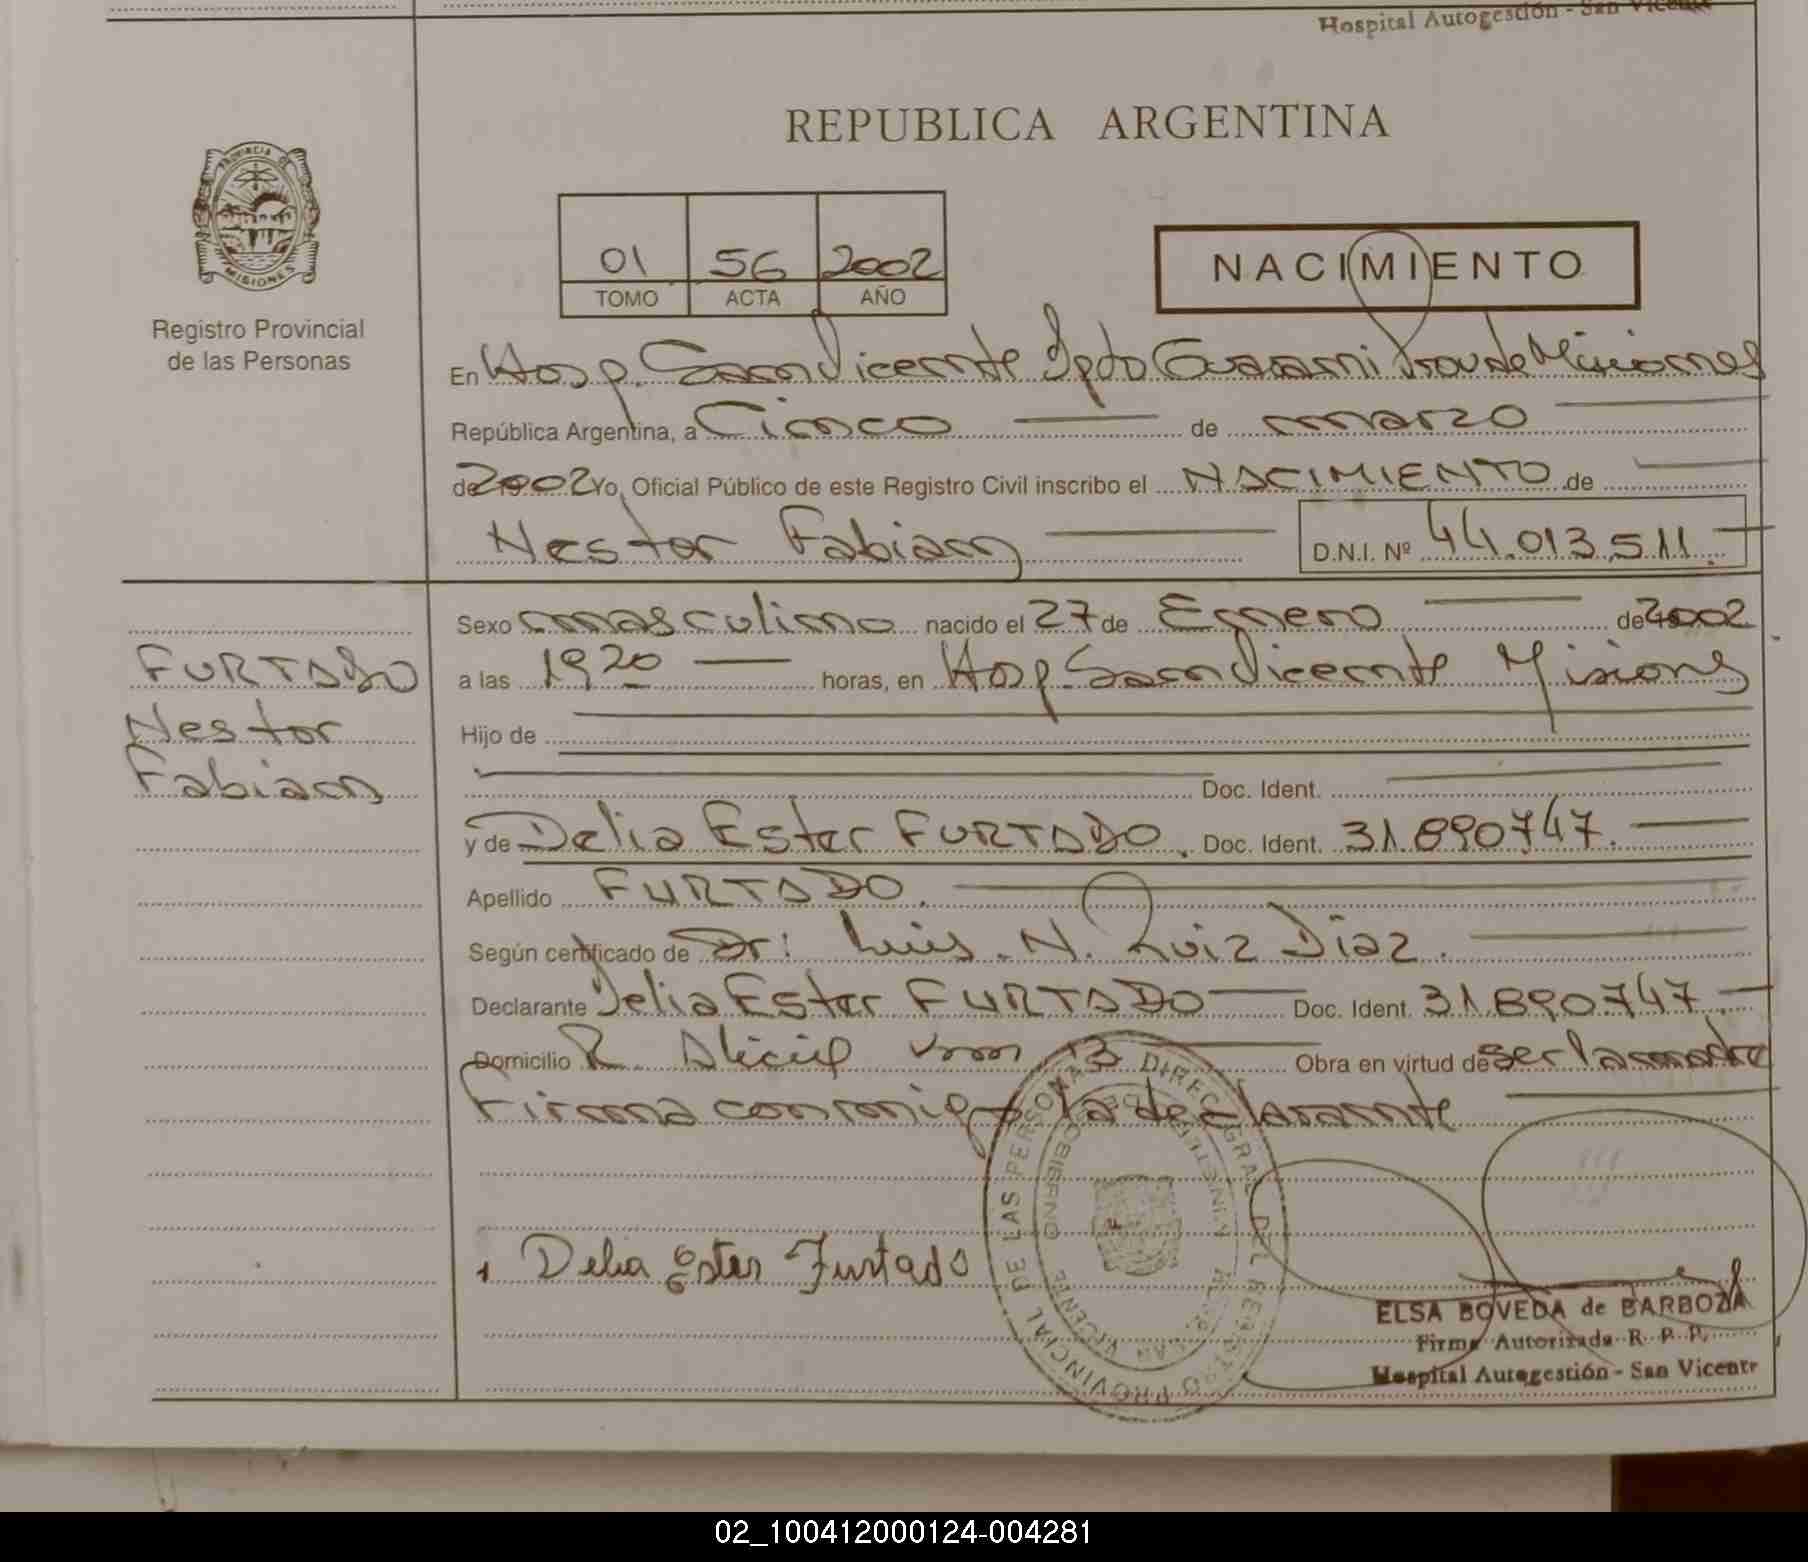 Hospital Autogestión - San Vicente
REPUBLICA ARGENTINA
PROVINCIA DE
MISIONES
Registro Provincial
de las Personas
01 56 2002
TOMO ACTA AÑO
NACIMIENTO
En Hosp. San Vicente Dpto Guarani Prov de Misiones
República Argentina, a Cinco de marzo
de 2002 Yo, Oficial Público de este Registro Civil inscribo el NACIMIENTO de
Nestor Fabian D.N.I. Nº 44.013.511
FURTADO
Nestor
Fabian
Sexo masculino nacido el 27 de Enero de 2002
a las 1920 horas, en Hosp San Vicente Misiones
Hijo de
Doc. Ident.
y de Delia Ester FURTADO. Doc. Ident. 31.890747.
Apellido FURTADO.
Según certificado de Dr: Luis. N. Ruiz Diaz.
Declarante Delia Ester FURTADO Doc. Ident. 31.890.747.
Domicilio R. Alicia km 13 Obra en virtud de ser la madre
Firma conmigo la declarante
Delia Ester Furtado
DIREC. GRAL. DEL REGISTRO PROVINCIAL DE LAS PERSONAS
ELSA BOVEDA de BARBOZA
Firma Autorizada R. P. P.
Hospital Autogestión - San Vicente
02_100412000124-004281